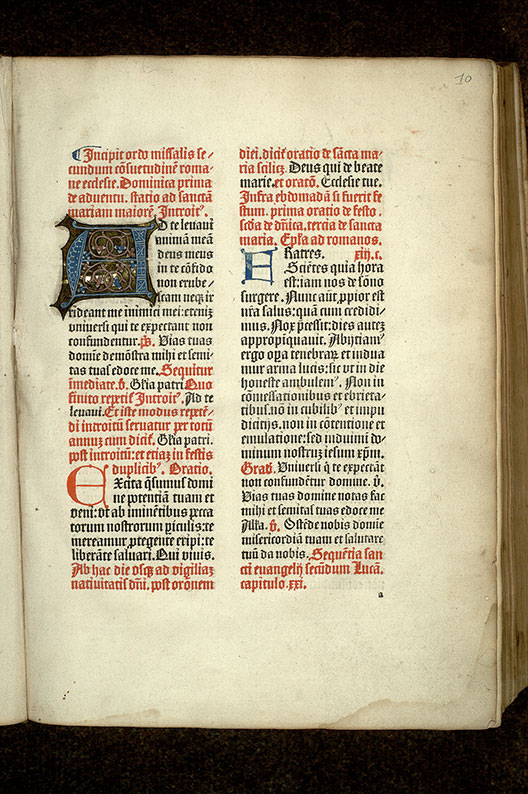 10
Incipit ordo missalis se-
cundum cōsuetudinē roma-
ne ecclesie. Dominica prima
de aduentu. statio ad sanctā
mariam maiorē. Introit⁹.
AD te leuaui
animā meā
deus meus
in te cōfido
non erube-
scam neqꝫ ir
rideant me inimici mei: etenim
vniuersi qui te expectant non
confundentur. p̄s. Vias tuas
domīe demōstra mihi et semi-
tas tuas edoce me. Sequitur
īmediate. v̄. Gl'ia patri. Quo
finito repetiť Introit⁹. Ad te
leuaui. Et iste modus repetē-
di introitū seruatur per totū
annuꝫ cum diciť. Gl'ia patri.
post introitū: et etiaꝫ in festis
duplicib⁹. Oratio.
EXcita q̄sumus domi
ne potentiā tuam et
veni: vt ab iminētibus pecca
torum nostrorum ꝑiculis: te
mereamur ꝓtegente eripi: te
liberāte saluari. Qui viuis.
Ab hac die vsqꝫ ad vigiliaꝫ
natiuitatis dn̄i. post orōnem
diei. diciť oratio de sācta ma-
ria scilicꝫ. Deus qui de beate
marie. et oratō. Ecclesie tue.
Infra ebdomadā si fuerit fe
stum. prima oratio de festo.
scd̄a de dn̄ica. tercia de sancta
maria. Ep̄la ad romanos.
FRatres. xiij. c.
Sciētes quia hora
est: iam nos de sōno
surgere. Nunc aūt ꝓpior est
nr̄a salus: quā cum credidi-
mus. Nox p̄cessit: dies autez
appropiquauit. Abijciam⁹
ergo oꝑa tenebraꝝ: et indua
mur arma lucis: sic vt in die
honeste ambulem⁹. Non in
cōmessationibus et ebrieta-
tibus: nō in cubilib⁹ et impu
dicitijs. non in cōtentione et
emulatione: sed induimī do-
minum nostruꝫ iesum xp̄m.
Grad̄. Vniuersi q̄ te expectāt
non confundētur domine. v̄.
Vias tuas domine notas fac
mihi et semitas tuas edoce me
Alľa. v̄. Ostēde nobis domie
misericordiā tuam et salutare
tuū da nobis. Sequētia san
cti euangelij secūdum Lucā.
capitulo. xxi.
a